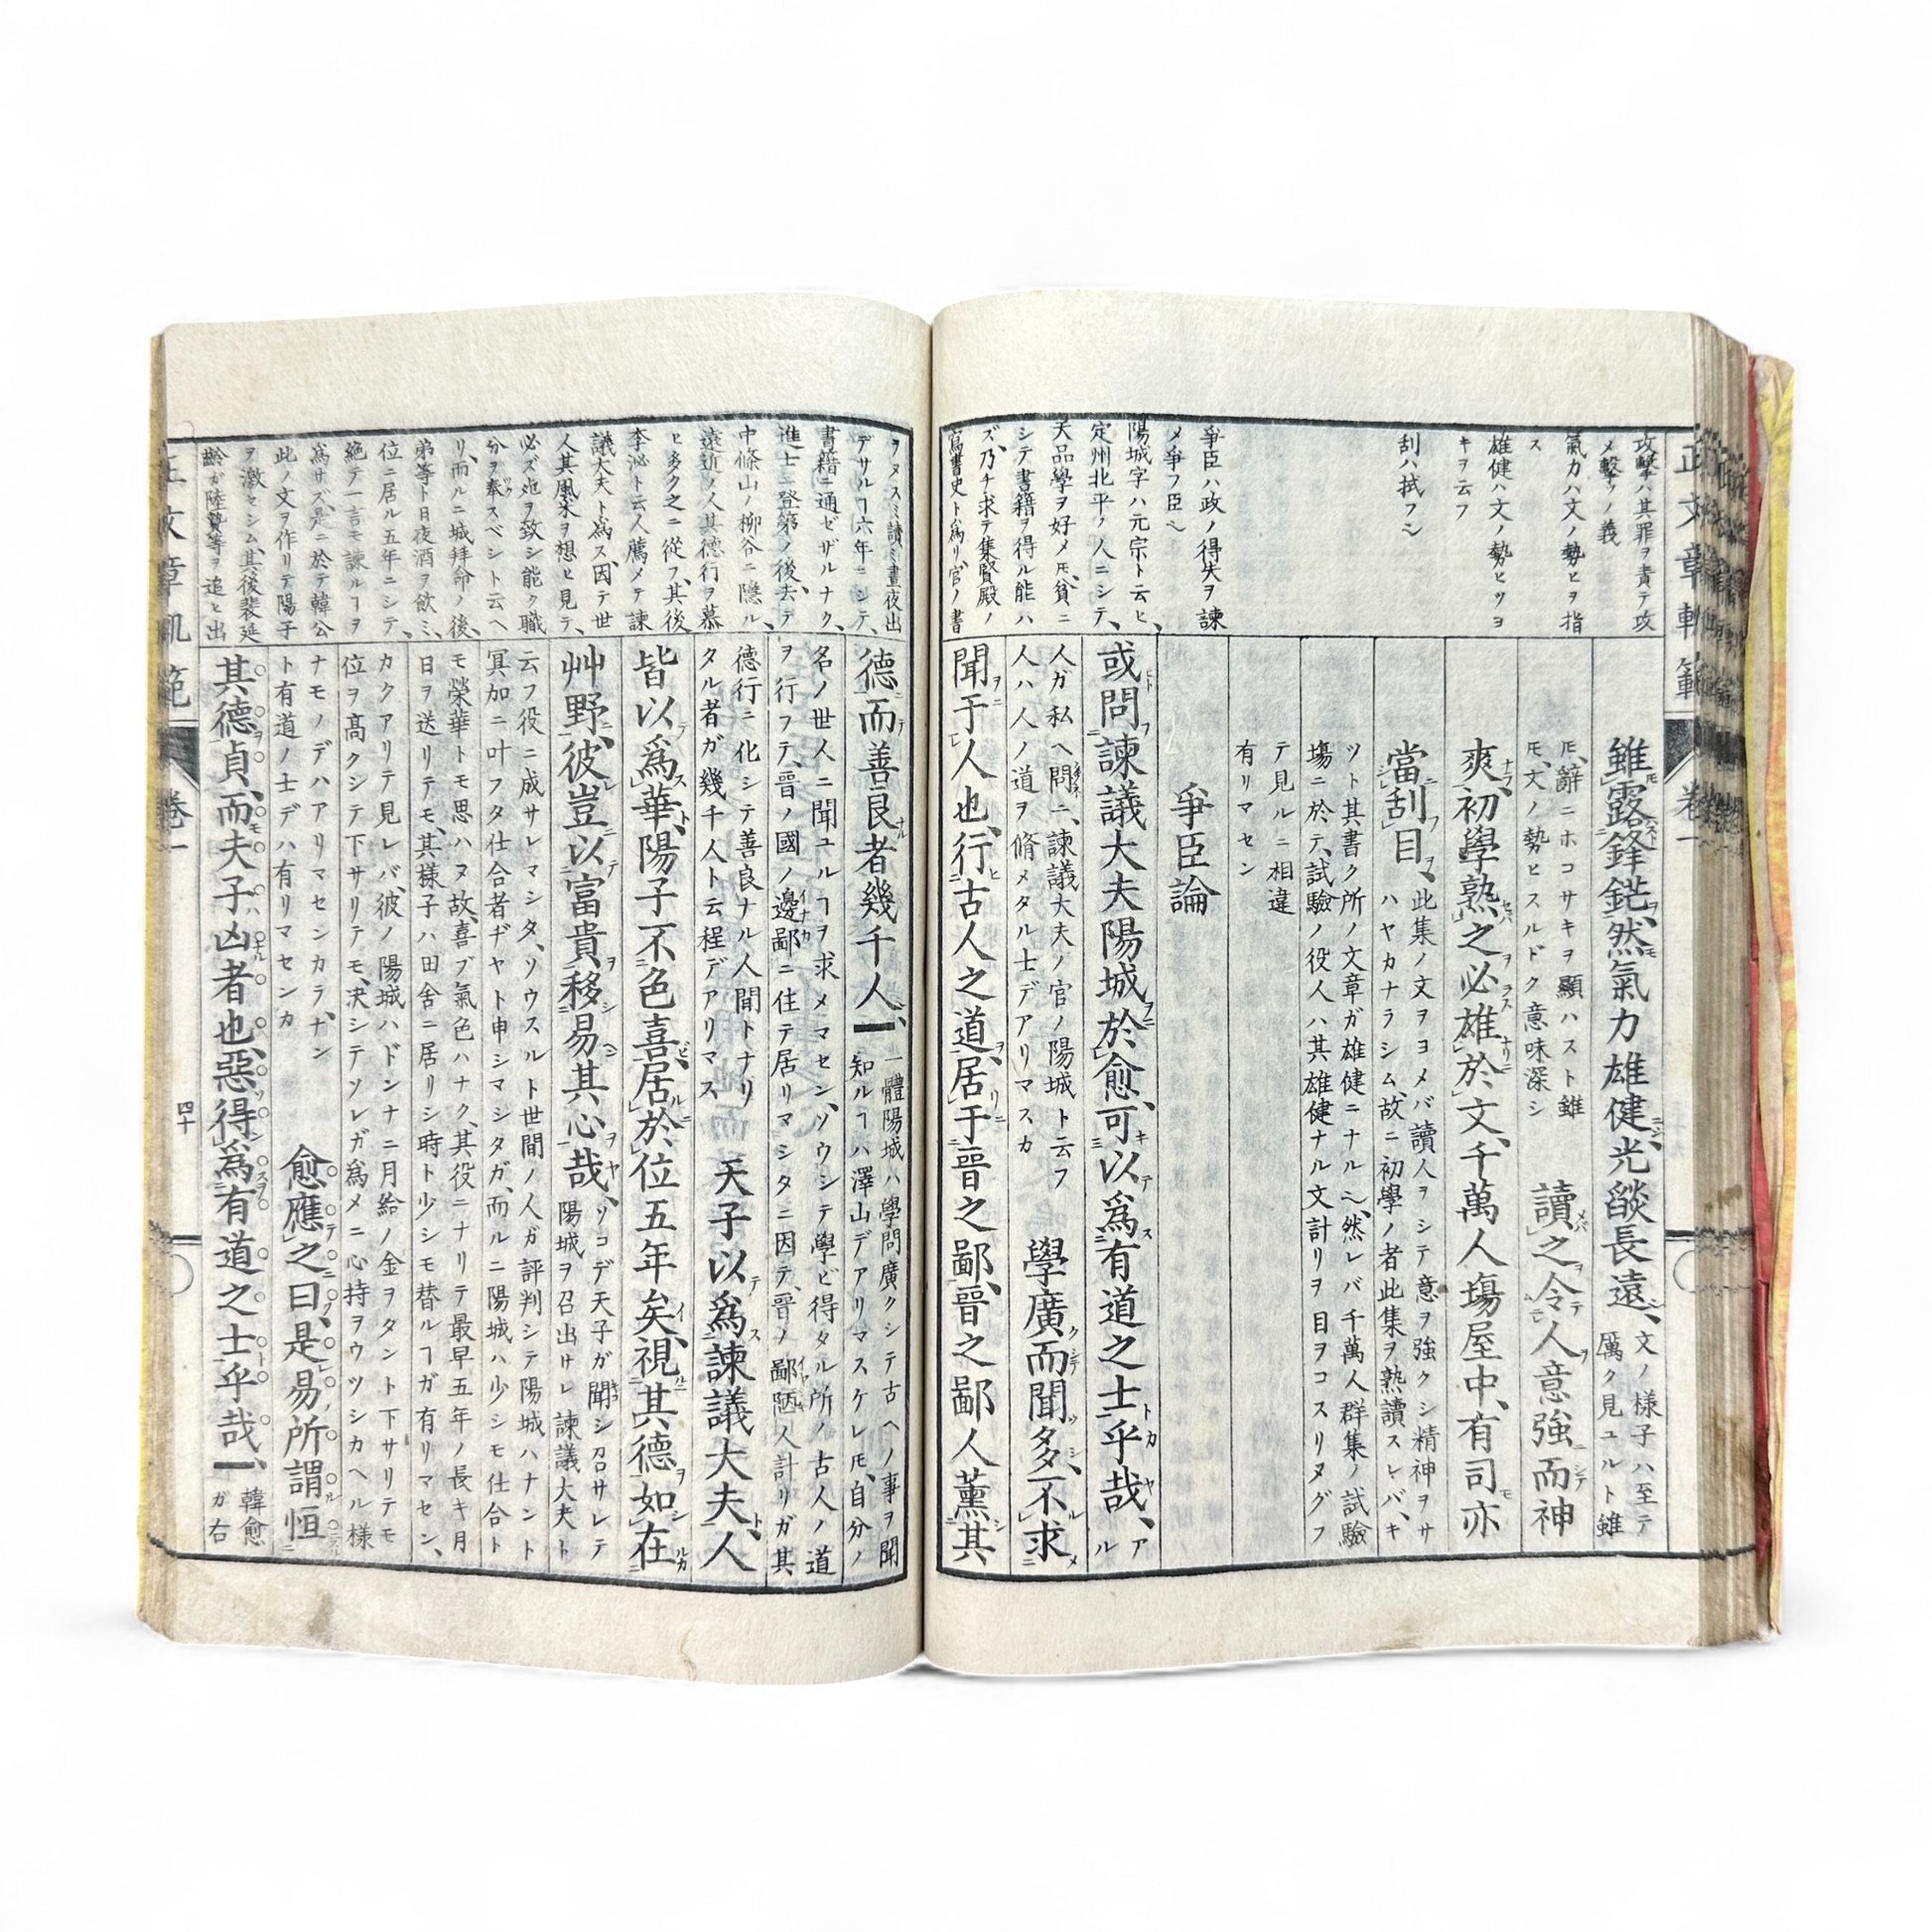 攻擊ハ其罪ヲ責テ攻
メ擊ツノ義
氣力ハ文ノ勢ヒヲ指
ス
雄健ハ文ノ勢ヒツヨ
キヲ云フ
刮ハ拭フ
爭臣ハ政ノ得失ヲ諫
メ爭フ臣
陽城字ハ元宗ト云ヒ、
定州北平ノ人ニシテ、
天品學ヲ好メ𪜈、貧ニ
シテ書籍ヲ得ル能ハ
ズ、乃チ求テ集賢殿ノ
寫書史ト爲リ、官ノ書
雖露鋒鋩、然氣力雄健光燄長遠、
文ノ樣子ハ至テ
厲ク見ユルト雖
𪜈、辭ニホコサキヲ顯ハスト雖
𪜈、文ノ勢ヒスルドク意味深シ
讀之令人意強而神
爽、初學熟之必雄於文、千萬人塲屋中、有司亦
當刮目、
此集ノ文ヲヨメバ讀人ヲシテ意ヲ強クシ精神ヲサ
ハヤカナラシム、故ニ初學ノ者此集ヲ熟讀スレバ、キ
ツト其書ク所ノ文章ガ雄健ニナル、然レバ千萬人群集ノ試驗
塲ニ於テ、試驗ノ役人ハ其雄健ナル文計リヲ目ヲコスリヌグフ
テ見ルニ相違
有リマセン
爭臣論
或問諫議大夫陽城於愈、可以爲有道之士乎哉、
ア
ル
人ガ私ヘ問ニ、諫議大夫ノ官ノ陽城ト云フ
人ハ人ノ道ヲ脩メタル士デアリマスカ
學廣而聞多、不求
聞于人也、行古人之道、居于晉之鄙、晉之鄙人薰其
ヲヌスミ讀ミ晝夜出
デサルヿ六年ニシテ、
書籍ニ通ゼザルナク、
進士ニ登第ノ後、去テ
中條山ノ柳谷ニ隱ル、
遠近ノ人其德行ヲ慕
ヒ多ク之ニ從フ、其後
李泌ト云人薦メテ諫
議大夫ト爲ス、因テ世
人其風采ヲ想ヒ見テ、
必ズ死ヲ致シ能ク職
分ヲ奉スベシト云ヘ
リ、而ルニ城拜命ノ後、
弟等ト日夜酒ヲ飲ミ、
位ニ居ル五年ニシテ、
絶テ一言モ諫ルヿヲ
爲サズ、是ニ於テ韓公
此ノ文ヲ作リテ陽子
ヲ激セシム、其後裴延
齡ガ陸贄等ヲ追ヒ出
德而善良者幾千人、
一體陽城ハ學問廣クシテ古ヘノ事ヲ聞
知ルヿハ澤山デアリマスケレ𪜈、自分ノ
名ノ世人ニ聞ユルヿヲ求メマセン、ソウシテ學ビ得タル所ノ古人ノ道
ヲ行フテ、晉ノ國ノ邊鄙ニ住テ居リマシタニ因テ、晉ノ鄙陋人計リガ其
德行ニ化シテ善良ナル人間トナリ
タル者ガ幾千人ト云程デアリマス
天子以爲諫議大夫、人
皆以爲華、陽子不色喜、居於位五年矣、視其德如在
艸野、彼豈以富貴移易其心哉、
ソコデ天子ガ聞シ召サレテ
陽城ヲ召出サレ諫議大夫ト
云フ役ニ成サレマシタ、ソウスルト世間ノ人ガ評判シテ陽城ハナント
冥加ニ叶フタ仕合者ヂヤト申シマシタガ、而ルニ陽城ハ少シモ仕合ト
モ榮華トモ思ハヌ故、喜ブ氣色ハナク、其役ニナリテ最早五年ノ長キ月
日ヲ送リテモ、其樣子ハ田舍ニ居リシ時ト少シモ替ルヿガ有リマセン、
カクアリテ見レバ、彼ノ陽城ハドンナニ月給ノ金ヲタント下サリテモ
位ヲ高クシテ下サリテモ、決シテソレガ爲メニ心持ヲウツシカヘル樣
ナモノデハアリマセンカラ、ナン
ト有道ノ士デハ有リマセンカ
愈應之曰、是易所謂恒
其德貞、而夫子凶者也、惡得爲有道之士乎哉、
韓愈
ガ右
正文章軌範
卷一
四十